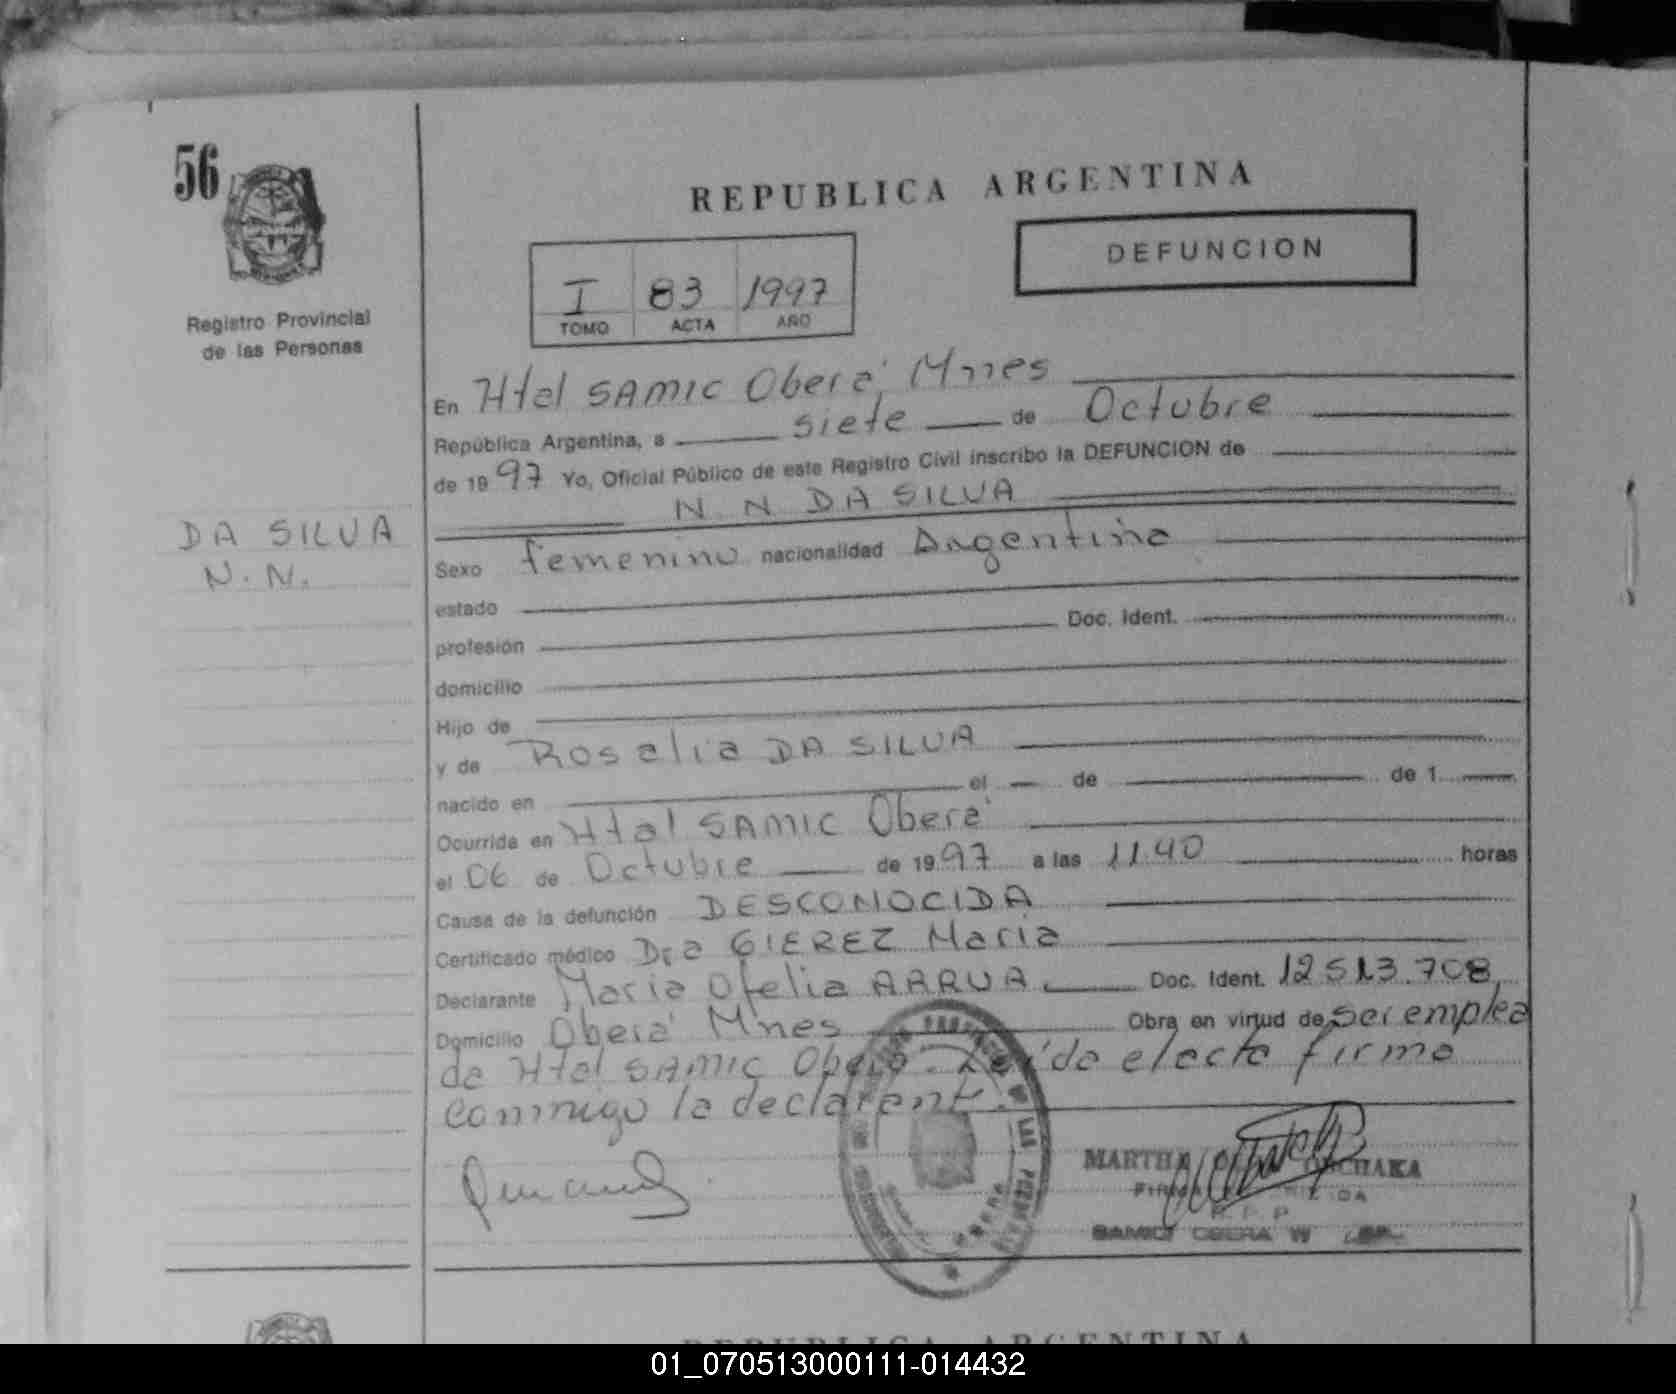 56
REPUBLICA ARGENTINA
DEFUNCION
I 83 1997
TOMO ACTA AÑO
Registro Provincial
de las Personas
En Htal SAMIC Oberá Mnes
República Argentina, a siete de Octubre
de 1997 Yo, Oficial Público de este Registro Civil inscribo la DEFUNCION de
N. N DA SILVA
DA SILVA
N. N.
Sexo femenino nacionalidad Argentina
estado
profesión Doc. Ident.
domicilio
Hijo de
y de Rosalia DA SILVA
nacido en el de de 1
Ocurrida en Htal SAMIC Oberá
el 06 de Octubre de 1997 a las 11.40 horas
Causa de la defunción DESCONOCIDA
Certificado médico Dra GIEREZ Maria
Declarante Maria Ofelia ARRUA Doc. Ident. 12513.708
Domicilio Oberá Mnes Obra en virtud de ser emplea
da Htal SAMIC Oberá. Leída el acta firma
conmigo la declarante.
MARTHA
R. P. P
SAMIC OBERA
REPUBLICA ARGENTINA
01_070513000111-014432